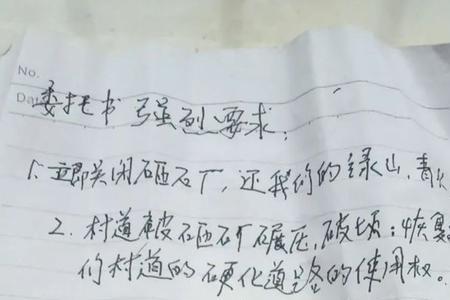 No.
Da
委托书 强烈要求:
1. 立即关闭砸石厂,还我们的绿山,青
2. 村道被砸石厂碾压,破坏;恢复
们村道的硬化道路的使用权。